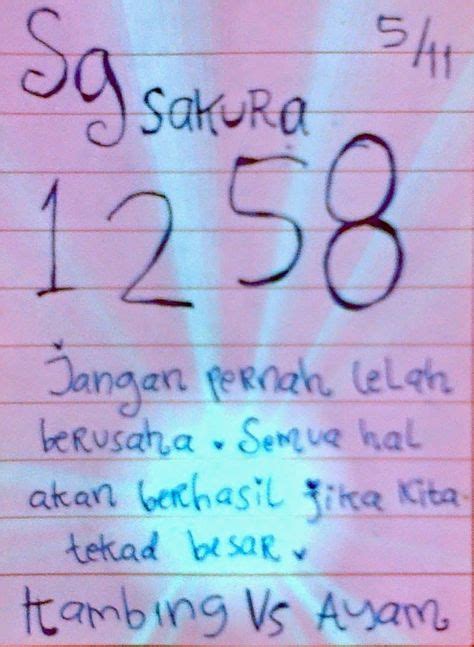 Sg
5/11
SAKURA
1258
Jangan pernah lelah
berusaha. Semua hal
akan berhasil jika kita
tekad besar.
Kambing Vs Ayam